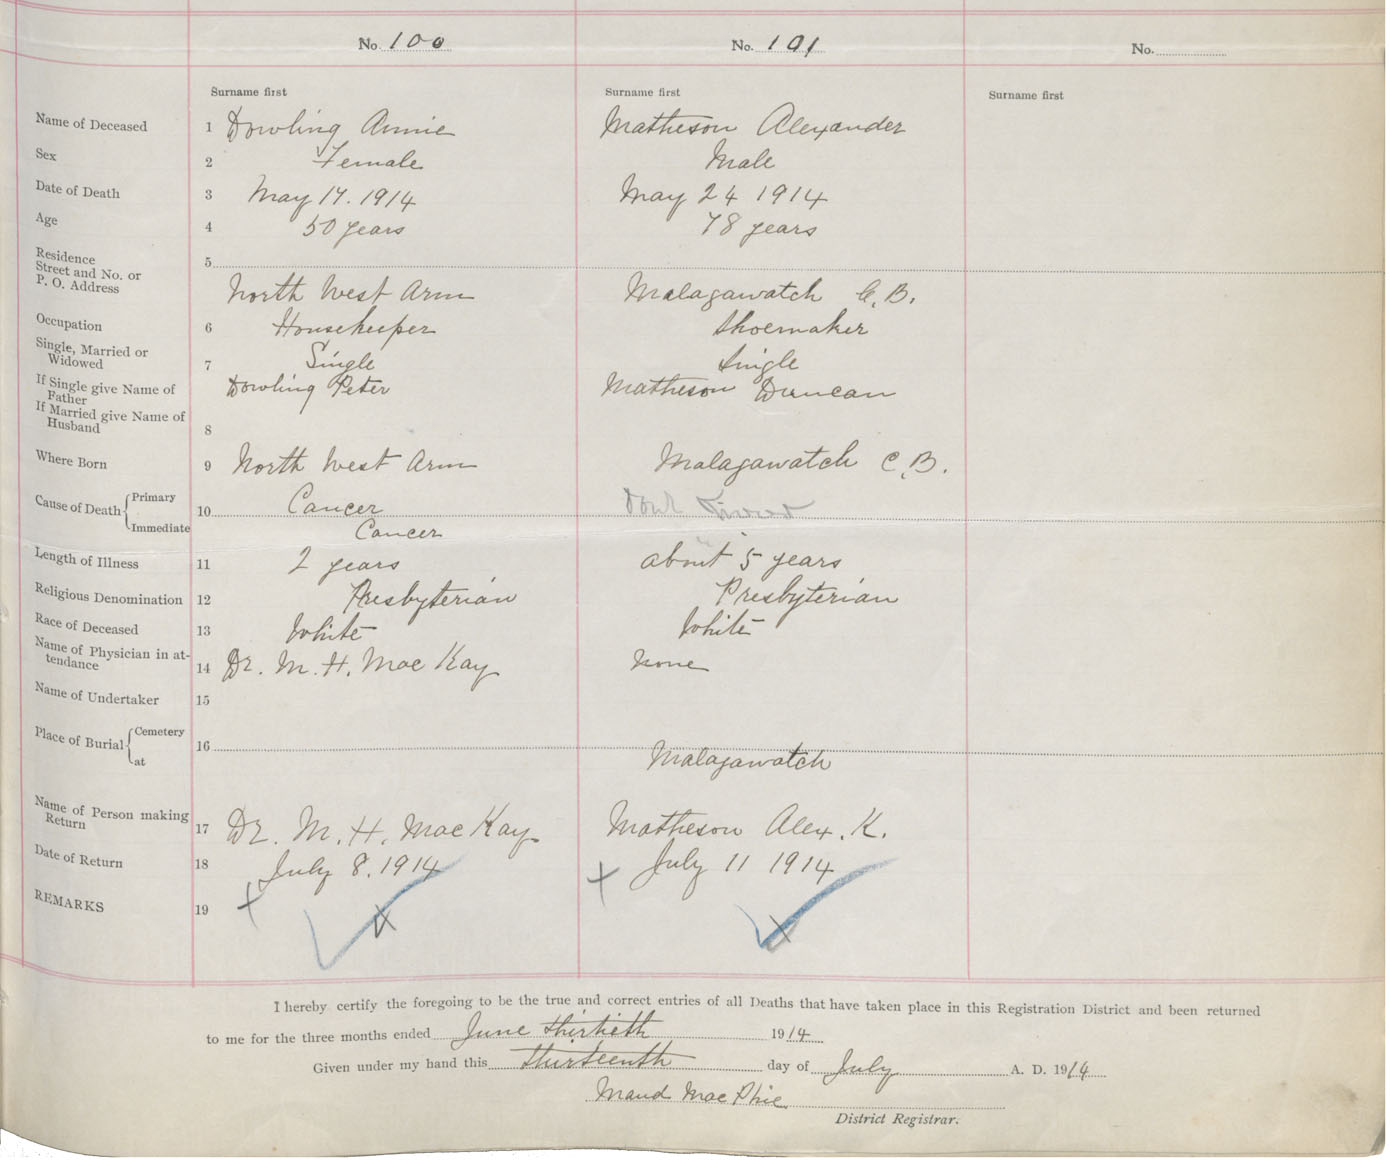 No. 100 No. 101 No.
Surname first Surname first Surname first
Name of Deceased 1 Dowling Annie Matheson Alexander
Sex 2 Female Male
Date of Death 3 May 17. 1914 May 24 1914
Age 4 50 years 78 years
Residence 5
Street and No. or
P. O. Address North West Arm Malagawatch C.B.
Occupation 6 Housekeeper Shoemaker
Single, Married or
Widowed 7 Single Single
If Single give Name of
Father Dowling Peter Matheson Duncan
If Married give Name of
Husband 8
Where Born 9 North West Arm Malagawatch C.B.
Cause of Death { Primary 10 Cancer
Immediate Cancer
Length of Illness 11 2 years about 5 years
Religious Denomination 12 Presbyterian Presbyterian
Race of Deceased 13 White White
Name of Physician in at-
tendance 14 Dr. M. H. MacKay None
Name of Undertaker 15
Place of Burial { Cemetery 16
at Malagawatch
Name of Person making
Return 17 Dr. M. H. MacKay Matheson Alex. K.
Date of Return 18 July 8. 1914 July 11 1914
REMARKS 19
I hereby certify the foregoing to be the true and correct entries of all Deaths that have taken place in this Registration District and been returned
to me for the three months ended June thirtieth 1914
Given under my hand this thirteenth day of July A. D. 1914
Maud MacPhie
District Registrar.